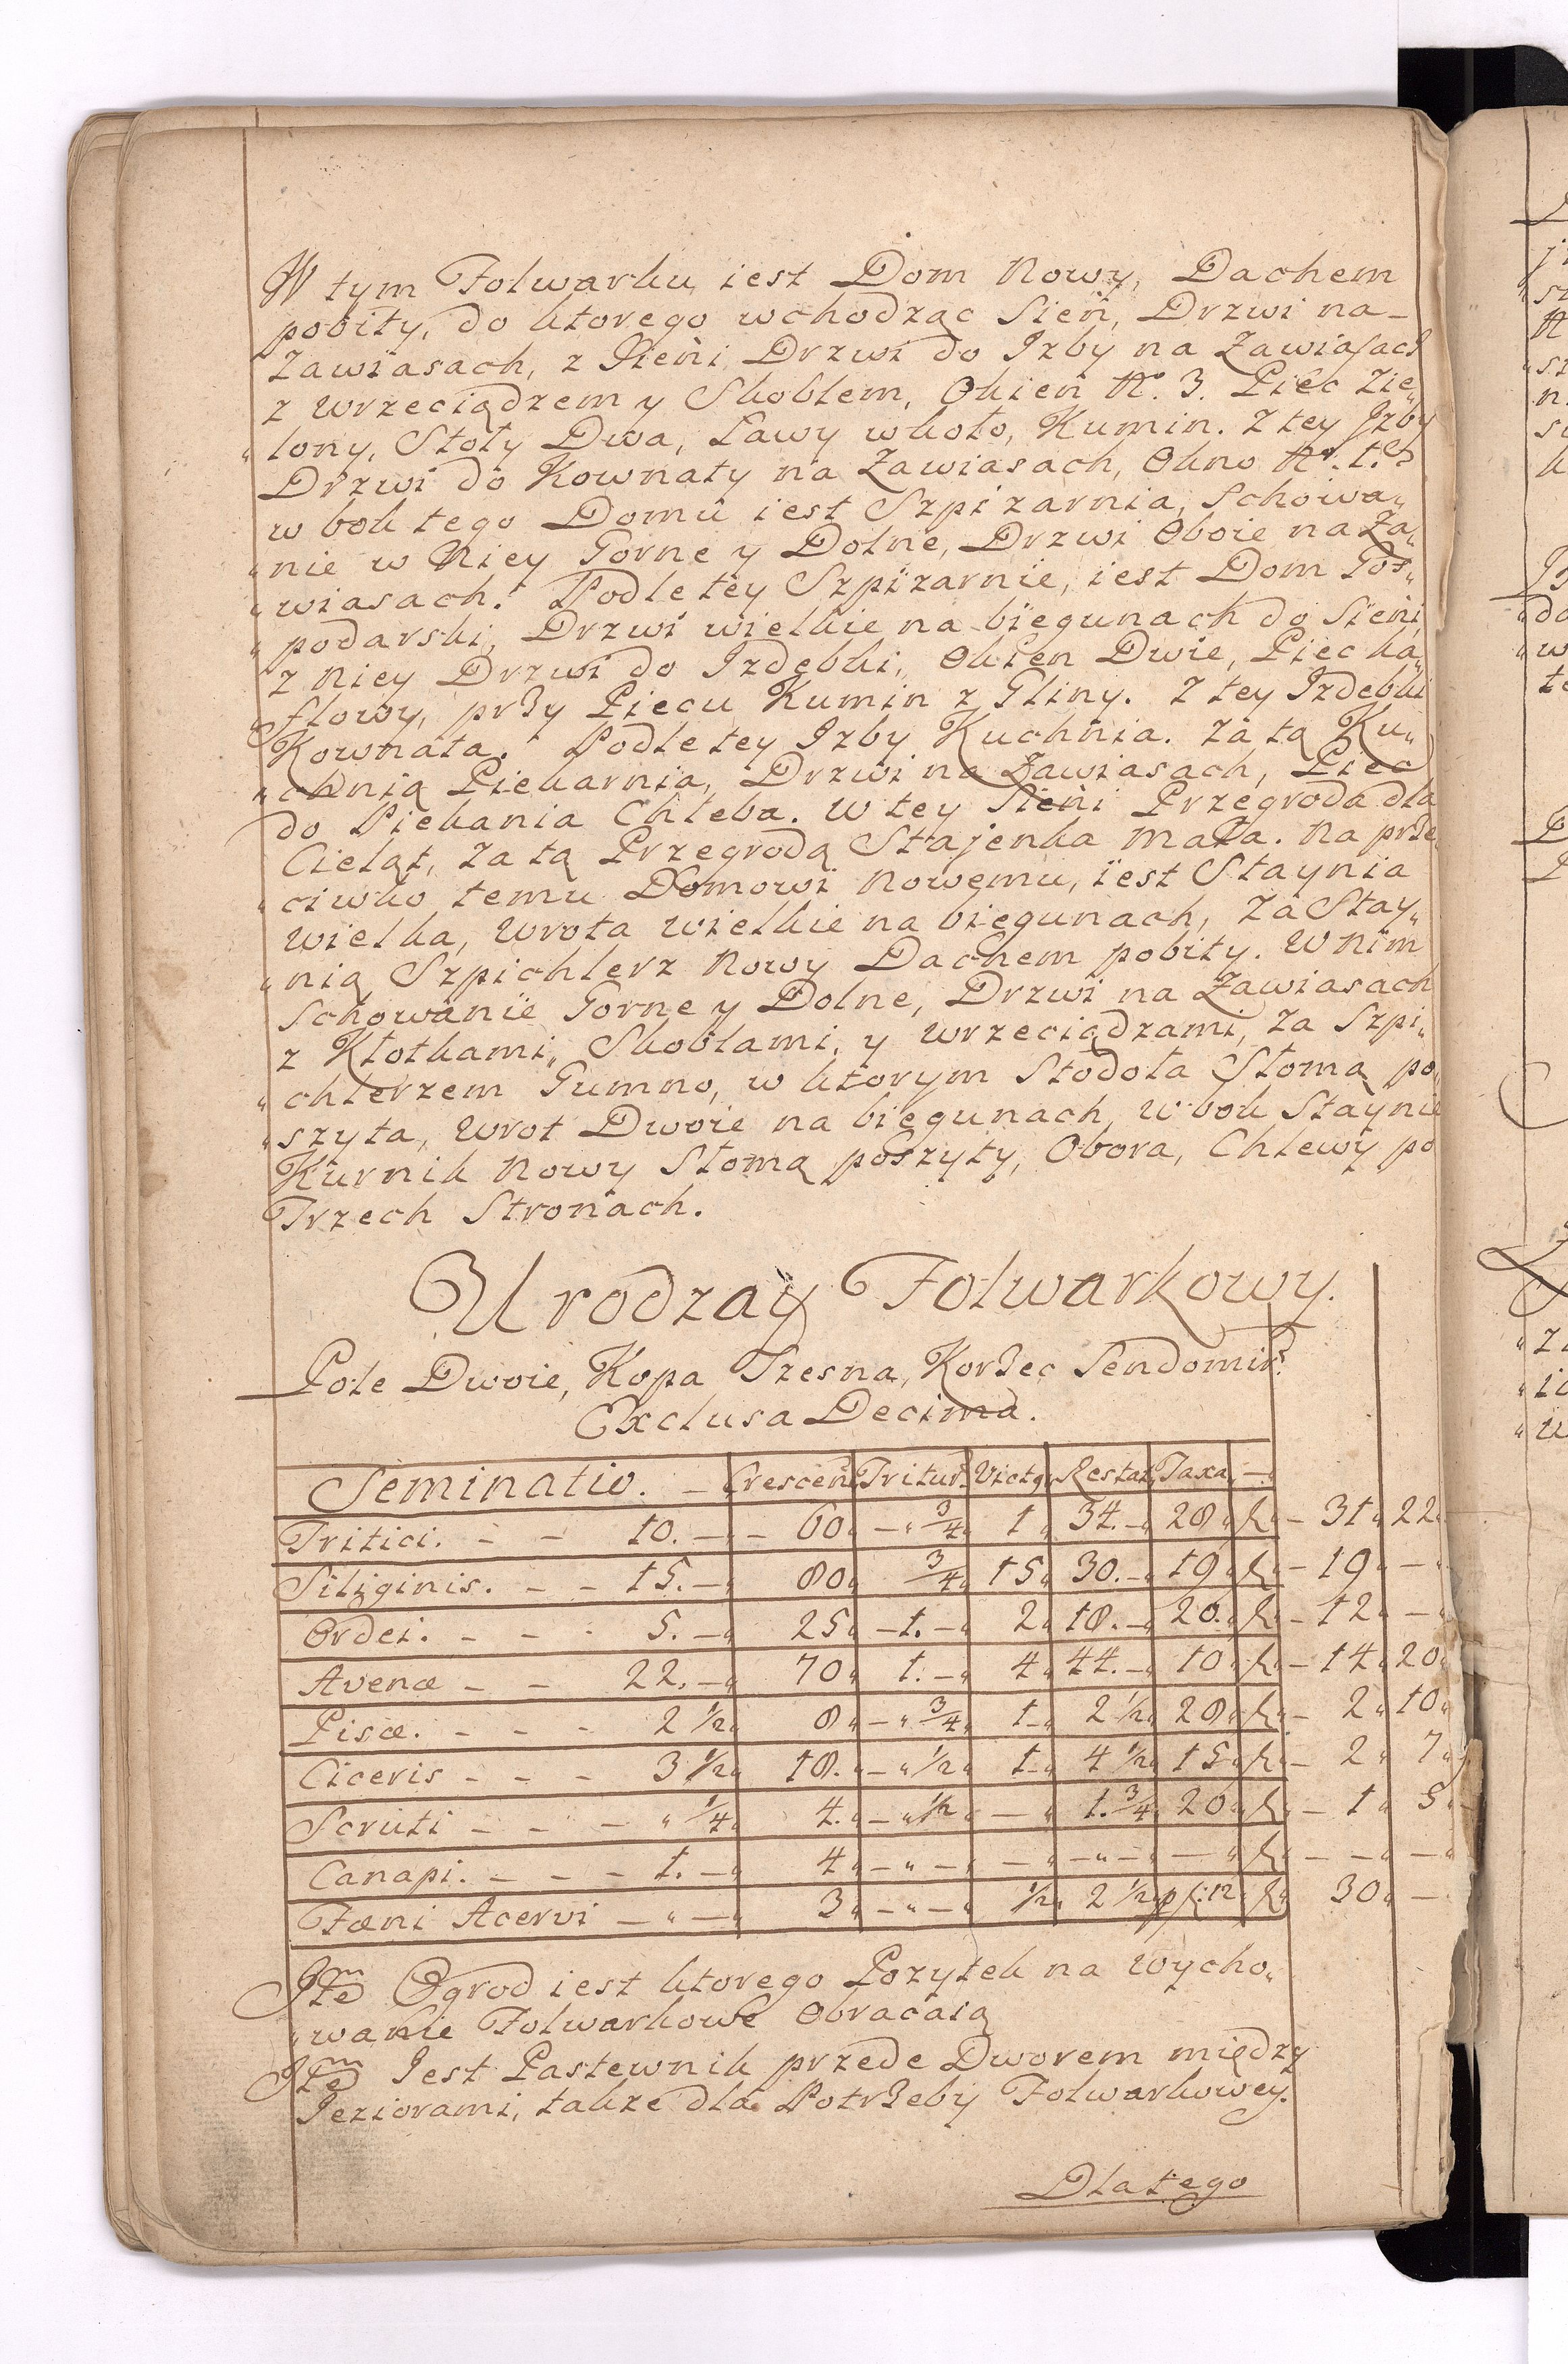 W tym Folwarku iest Dom Nowy, Dachem
pobity, do ktorego wchodząc Sień, Drzwi na-
Zawiasach, z Sieni Drzwi do Izby na Zawiasach
z wrzeciądzem y Skoblem, Okien No. 3. Piec Zie„
„lony, Stoły Dwa, Ławy wkoło, Kumin. Z tey Izby
Drzwi do Kownaty na Zawiasach, Okno No. 1.
w bok tego Domu iest Szpizarnia, Schowa„
„nie w Niey Gorne y Dolne, Drzwi Oboie na Za„
„wiasach. Podle tey Szpizarnie, iest Dom Gos„
„podarski, Drzwi wielkie na biegunach do Sieni,
z Niey Drzwi do Izdebki, Okien Dwie, Piec ka„
flowy, przy Piecu Kumin z Gliny. Z tey Izdebki
Kownata. Podle tey Izby Kuchnia. Za tą Ku„
„chnią Piekarnia, Drzwi na Zawiasach, Piec
do Piekania Chleba. W tey Sieni Przegroda dla
Cieląt, Za tą Przegrodą Stajenka mała. Na prze
„ciwko temu Domowi Nowemu, iest Staynia
wielka, Wrota wielkie na biegunach, Za Stay„
„nią Szpichlerz Nowy Dachem pobity. W Nim
Schowanie Gorne y Dolne, Drzwi na Zawiasach
z Kłotkami, Skoblami, y wrzeciądzami, Za Szpi„
„chlerzem Gumno, w ktorym Stodoła Słomą po„
„szyta, Wrot Dwoie na biegunach, W bok Staynie
Kurnik Nowy Słomą poszyty, Obora, Chlewy po
Trzech Stronach.
Urodzay Folwarkowy.
Pole Dwoie, Kopa Trzesna, Korzec Sendomir:
Exclusa Decima.
Seminatio. – Crescen: Tritur: Victq Restat Taxa –
Tritici. – – 10. – – 60 – „ 3/4 1 34. – 28 f. – 31 22
Siliginis. – – 15. – 80 3/4 15 30. – 19 f. – 19 –
Ordei. – – – 5. – 25 – 1. – 2 18. – 20. f. – 12 –
Avenæ – – 22. – 70 1. – 4 44. – 10 f. – 14 20
Pisæ. – – – 2 1/2 8 – „ 3/4 1 – 2 1/2 28 f. – 2 10
Ciceris – – – 3 1/2 18. – „ 1/2 1 – 4 1/2 15 f. – 2 7
Scruti – – – „ 1/4 4. – „ 1/2 – „ 1. 3/4 20 f. – 1 5
Canapi. – – – 1. – 4 – „ – – „ – „ – – „ f. – – „ –
Fæni Acervi – „ – 3 – „ – 1/2 2 1/2 p f: 12 f. 30 –
Itẽm Ogrod iest ktorego Pozytek na wycho„
„wanie Folwarkowe Obracaią
Itẽm Jest Pastewnik przede Dworem między
Jeziorami, takze dla Potrzeby Folwarkowey.
Dlatego